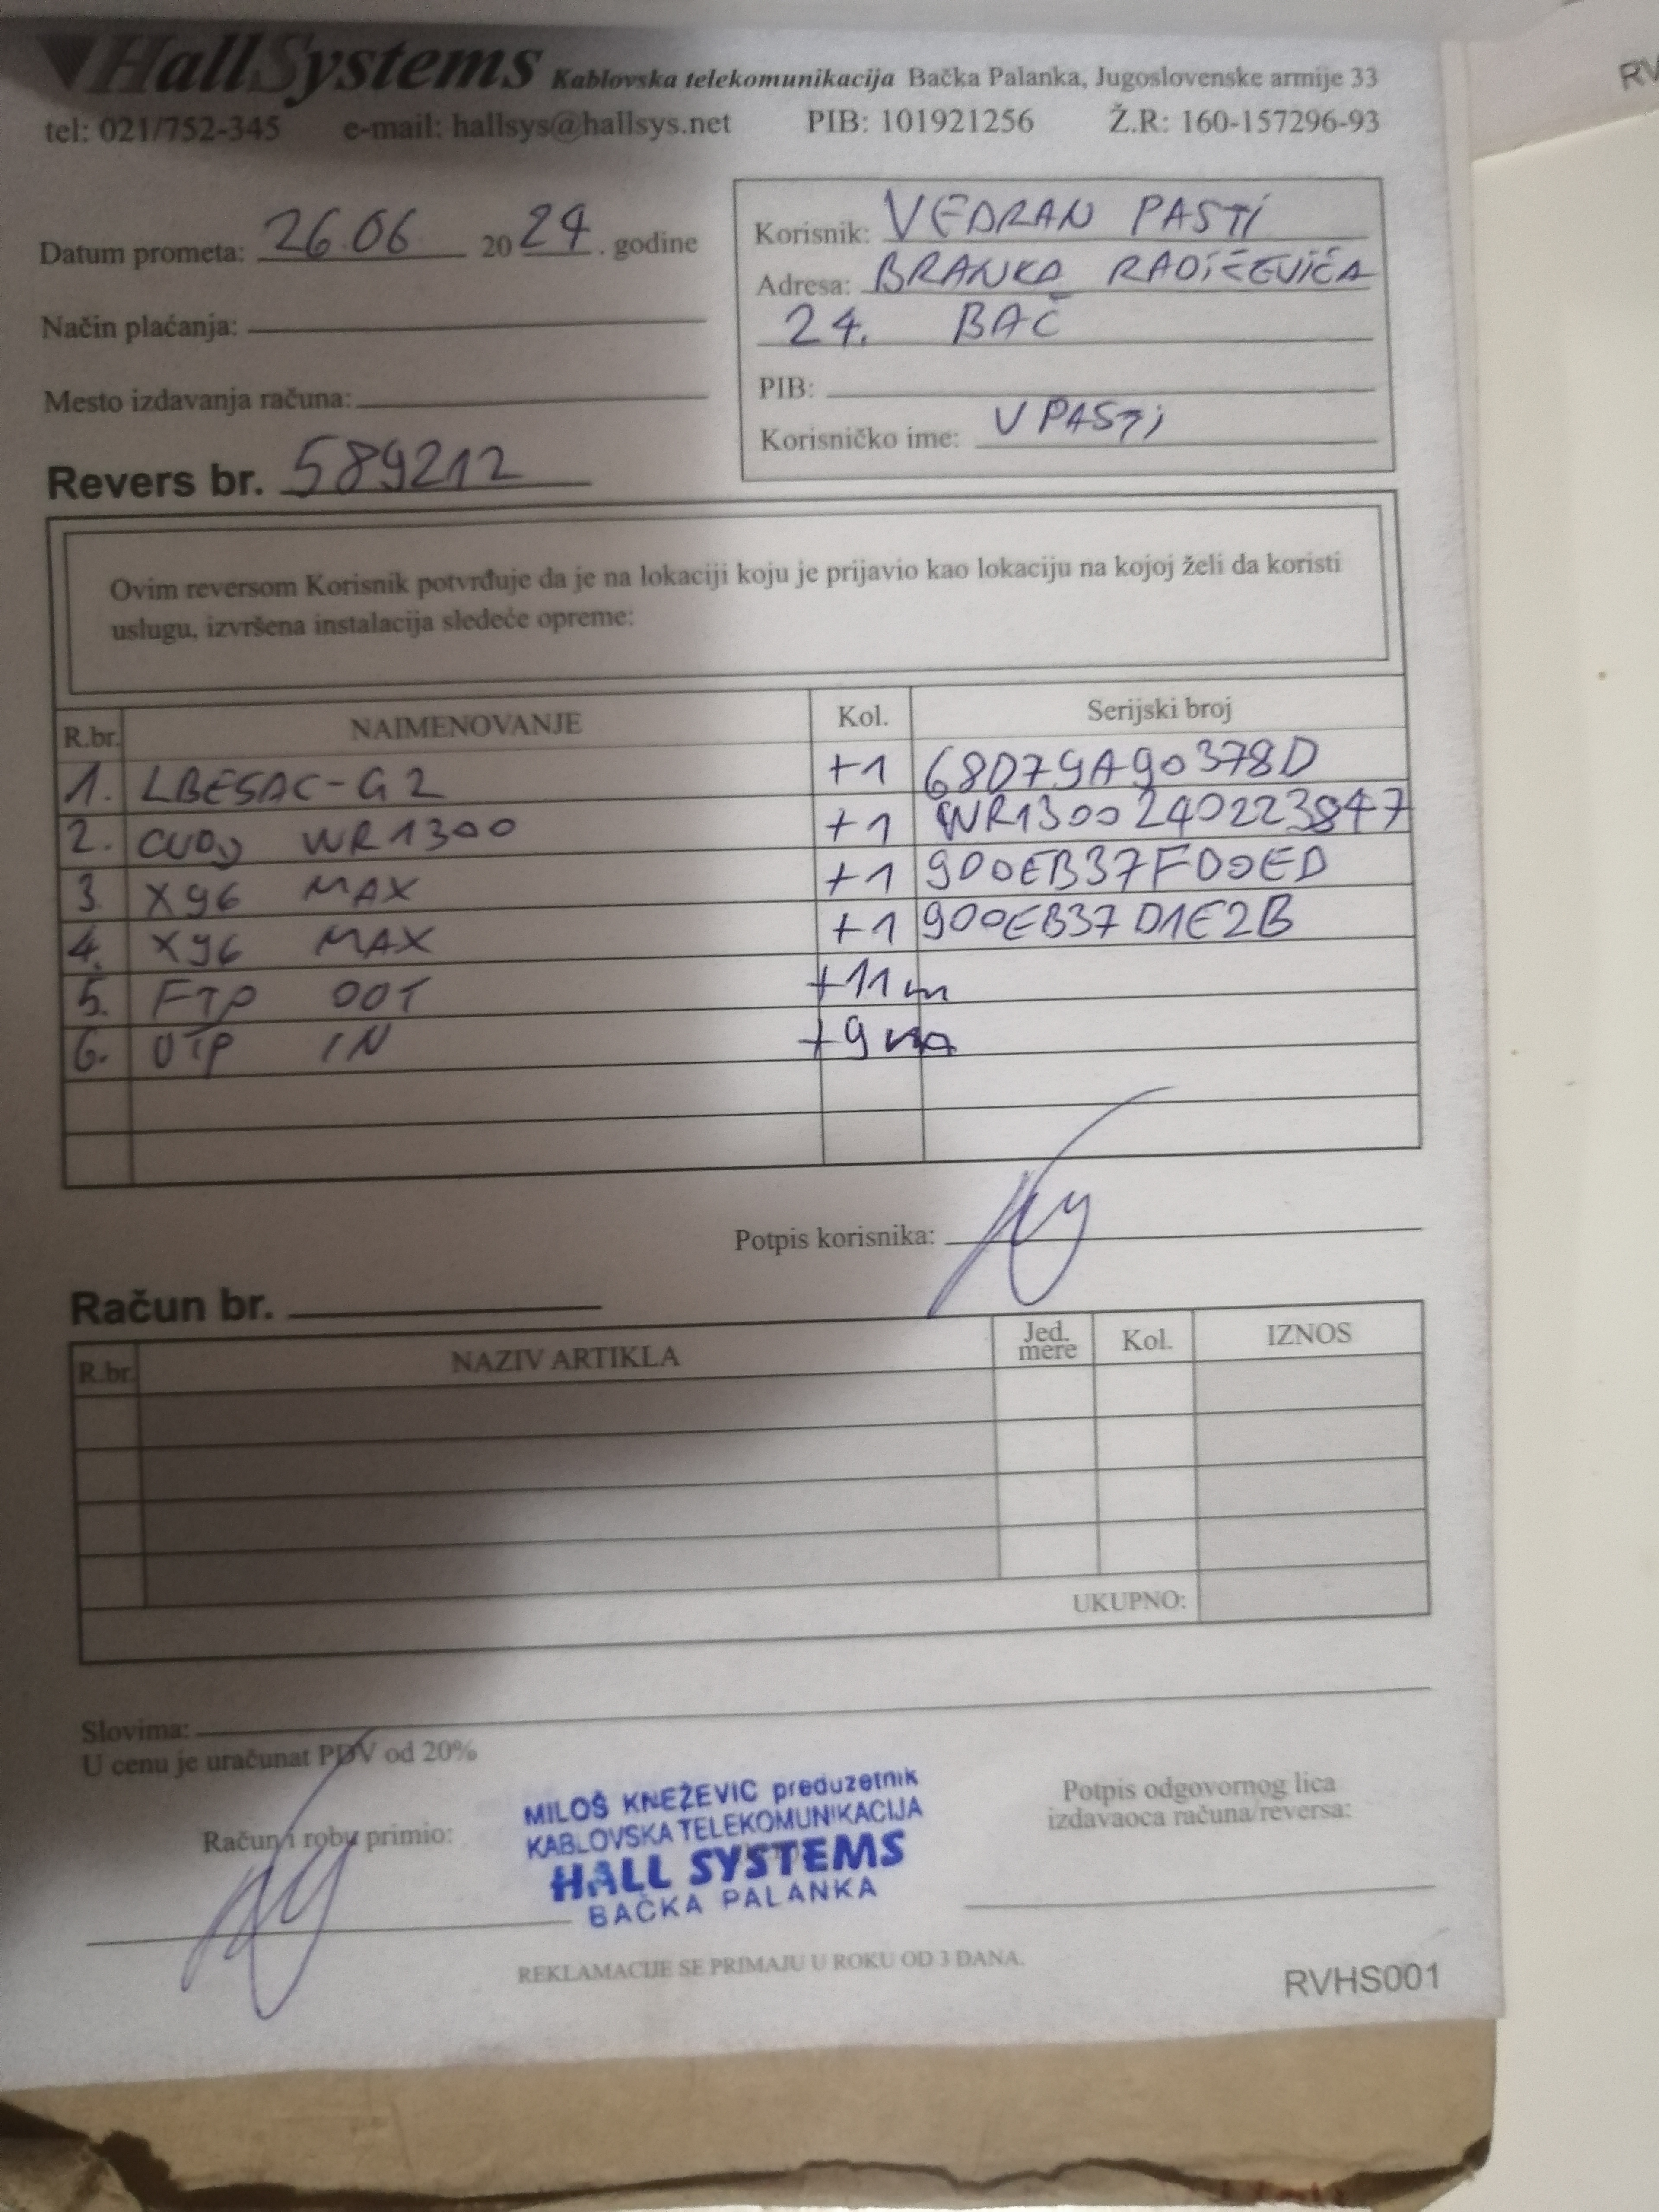 HallSystems Kablovska telekomunikacija Bačka Palanka, Jugoslovenske armije 33
tel: 021/752-345 e-mail: hallsys@hallsys.net PIB: 101921256 Ž.R: 160-157296-93
RV
Datum prometa: 26.06 2024. godine
Način plaćanja:
Mesto izdavanja računa:
Revers br. 589212
Korisnik: VEDRAN PASTI
Adresa: BRANKA RADIČEVIĆA
24. BAČ
PIB:
Korisničko ime: VPASTI
Ovim reversom Korisnik potvrđuje da je na lokaciji koju je prijavio kao lokaciju na kojoj želi da koristi
uslugu, izvršena instalacija sledeće opreme:
R.br. NAIMENOVANJE Kol. Serijski broj
1. LBE5AC-G2 +1 68D79A90378D
2. CUDY WR1300 +1 WR1300240223847
3. X96 MAX +1 900EB37FD0ED
4. X96 MAX +1 900EB37D1E2B
5. FTP OUT +11m
6. UTP IN +9m
Potpis korisnika:
Račun br.
R.br. NAZIV ARTIKLA Jed. mere Kol. IZNOS
UKUPNO:
Slovima:
U cenu je uračunat PDV od 20%
Račun i robu primio:
MILOŠ KNEŽEVIĆ preduzetnik
KABLOVSKA TELEKOMUNIKACIJA
HALL SYSTEMS
BAČKA PALANKA
Potpis odgovornog lica
izdavaoca računa/reversa:
REKLAMACIJE SE PRIMAJU U ROKU OD 3 DANA.
RVHS001